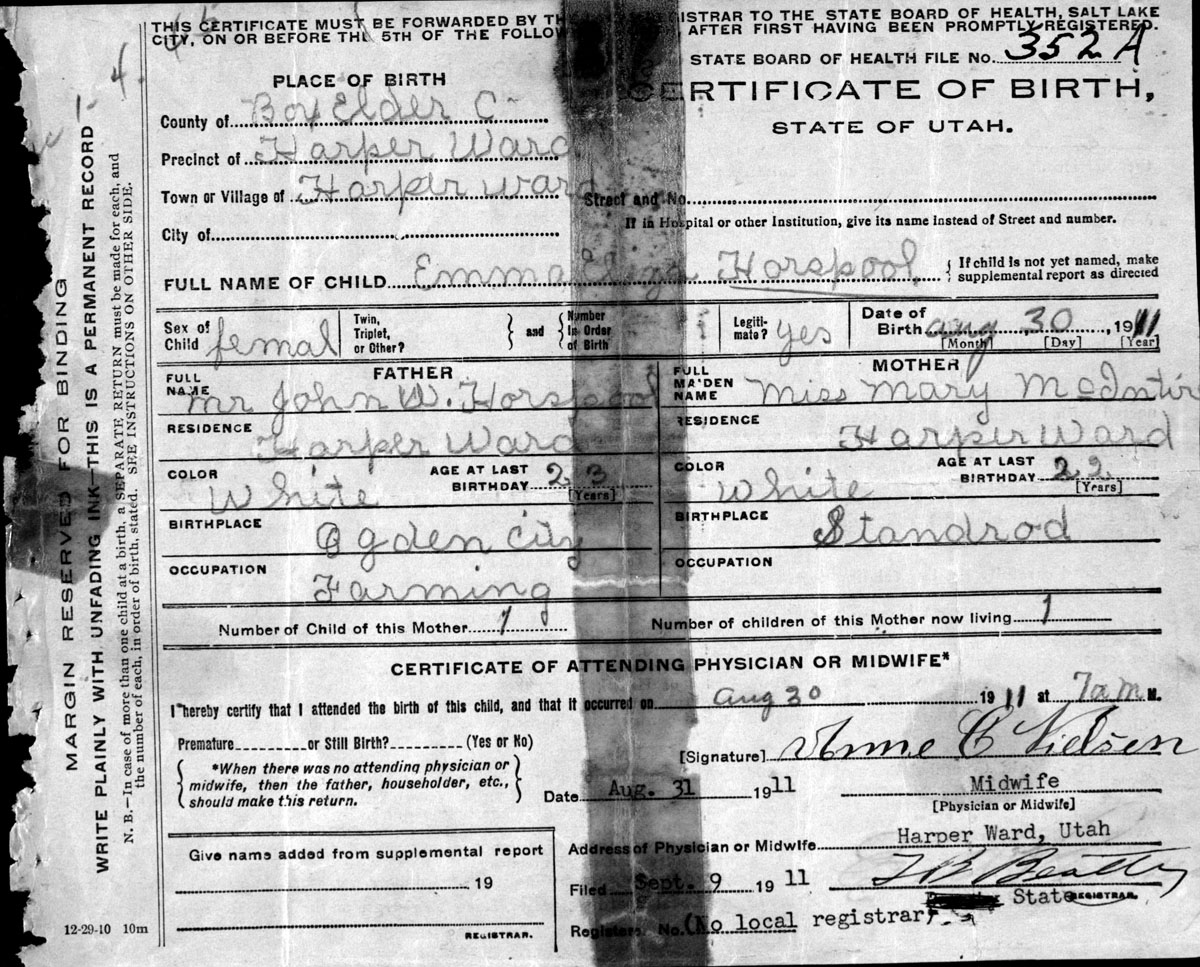 THIS CERTIFICATE MUST BE FORWARDED BY REGISTRAR TO THE STATE BOARD OF HEALTH, SALT LAKE
CITY, ON OR BEFORE THE 5TH OF THE AFTER FIRST HAVING BEEN PROMPTLY REGISTERED.
STATE BOARD OF HEALTH FILE No. 352 A
PLACE OF BIRTH
CERTIFICATE OF BIRTH,
STATE OF UTAH.
County of Box Elder C
Precinct of Harper Ward
Town or Village of Harper ward Street and No.
If in Hospital or other Institution, give its name instead of Street and number.
City of
FULL NAME OF CHILD Emma Horspool { If child is not yet named, make
supplemental report as directed
Sex of
Child femal
Twin,
Triplet,
or Other?
} and {
Number
In Order
of Birth
Legiti-
mate? yes
Date of
Birth aug 30, 1911
[Month] [Day] [Year]
FATHER
FULL
NAME mr John W. Horspool
RESIDENCE
Harper Ward
COLOR White
AGE AT LAST
BIRTHDAY 23
[Years]
BIRTHPLACE
Ogden City
OCCUPATION
Farming
MOTHER
FULL
MAIDEN
NAME Miss Mary McIntir
RESIDENCE
Harper Ward
COLOR White
AGE AT LAST
BIRTHDAY 22
[Years]
BIRTHPLACE
Standrod
OCCUPATION
Number of Child of this Mother 1 Number of children of this Mother now living 1
CERTIFICATE OF ATTENDING PHYSICIAN OR MIDWIFE*
I hereby certify that I attended the birth of this child, and that it occurred on aug 30 1911 at 7am M.
Premature or Still Birth? (Yes or No)
[Signature] Anne C Nielsen
{ *When there was no attending physician or
midwife, then the father, householder, etc.,
should make this return. }
Date Aug. 31 1911
Midwife
[Physician or Midwife]
Give name added from supplemental report
19
REGISTRAR.
Address of Physician or Midwife Harper Ward, Utah
Filed Sept. 9 1911 T B Beatty
State REGISTRAR.
Registers No. (No local registrar)
12-29-10 10m
MARGIN RESERVED FOR BINDING
WRITE PLAINLY WITH UNFADING INK—THIS IS A PERMANENT RECORD
N. B.—In case of more than one child at a birth, a SEPARATE RETURN must be made for each, and
the number of each, in order of birth, stated. SEE INSTRUCTIONS ON OTHER SIDE.